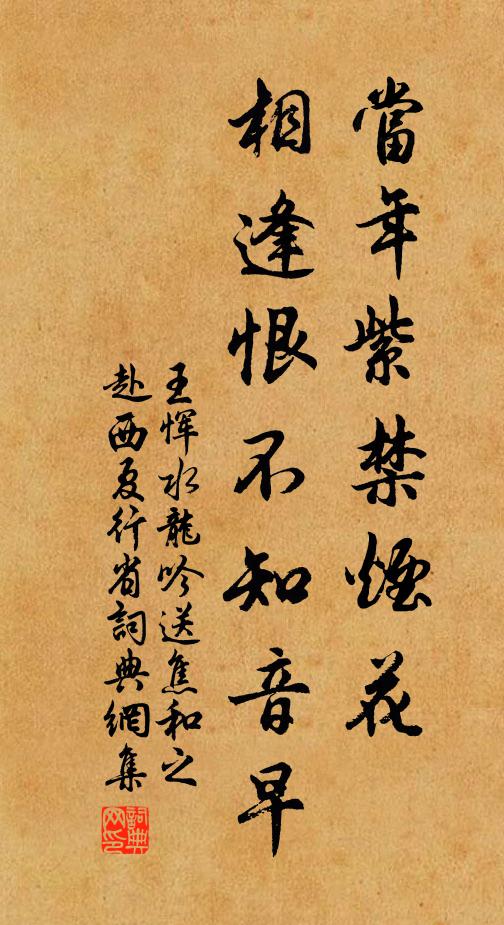 當年紫禁煙花
相逢恨不知音早
王惲水龍吟送焦和之
赴西夏行省詞典網集
詞典
网印